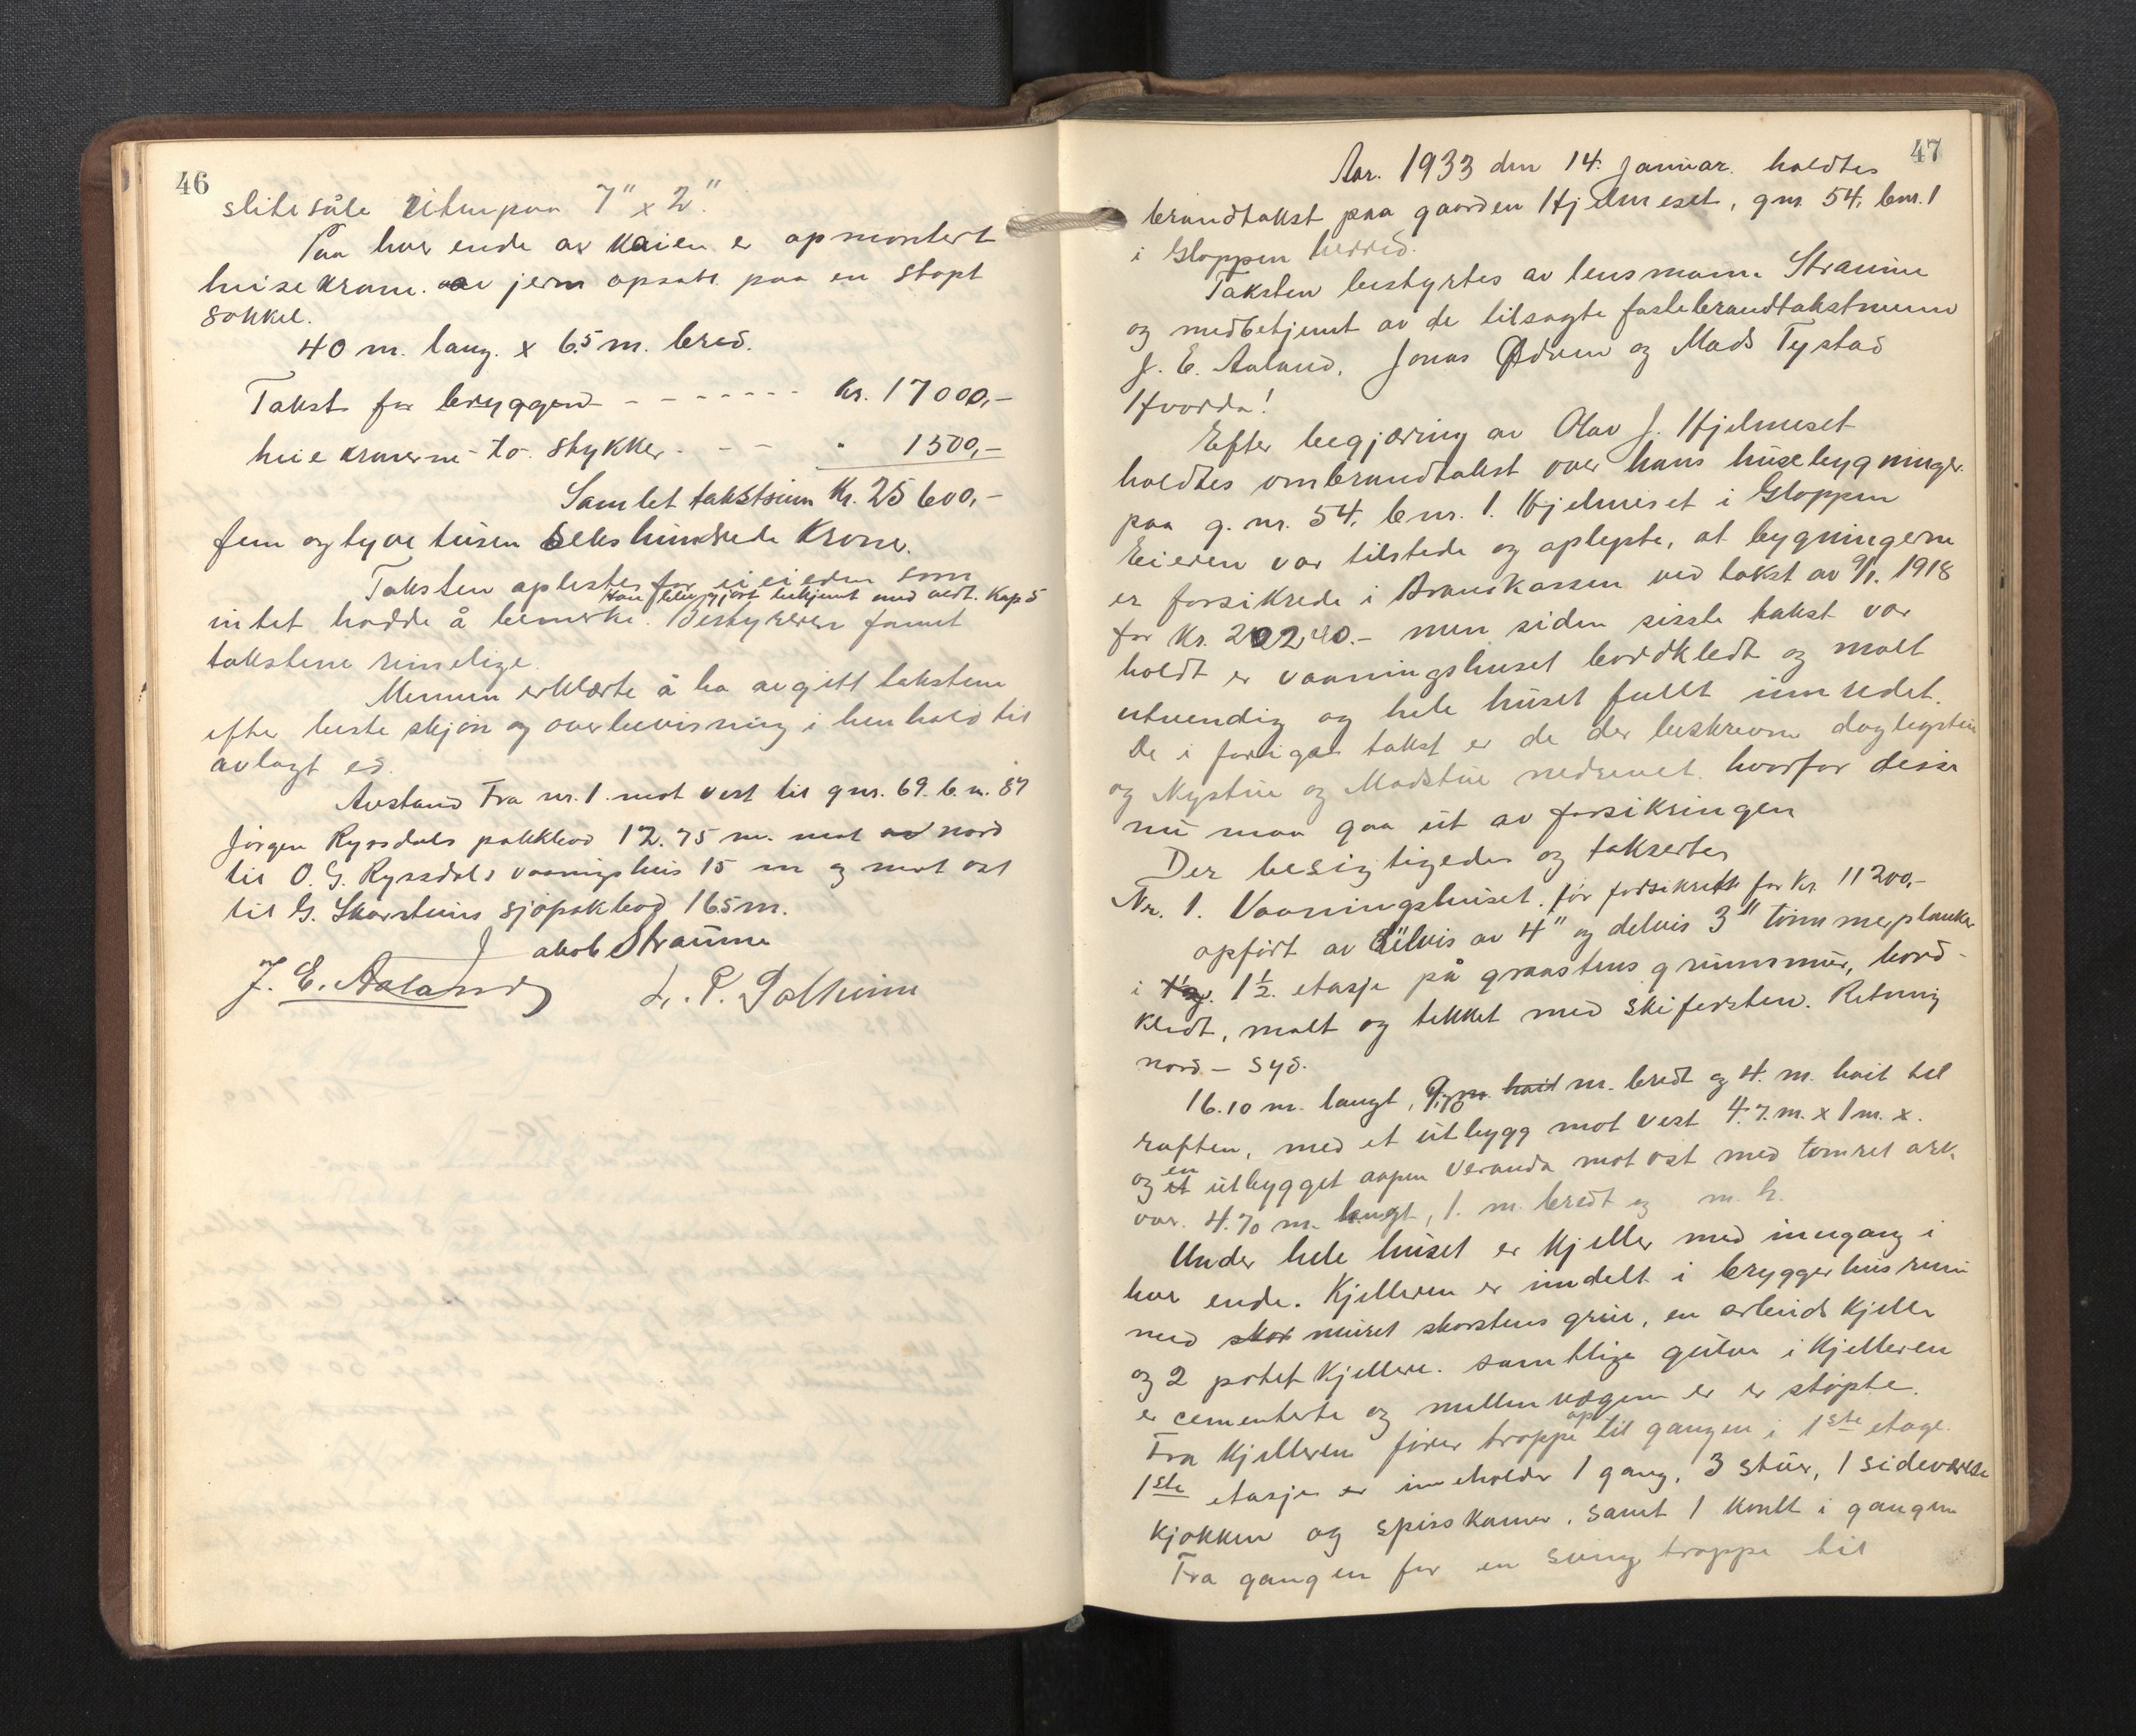 46
slitesåle ritmpaa 7" x 2".
Paa hver ende av kaien er opmontert
heisekrane av jern opsatt paa en støpt
sokkel.
40 m. lang. x 6.5 m. bred.
Takst for bryggen - - - - - - - kr. 17000,-
heisekranerne to stykker - - - " 1500,-
Samlet takstsum Kr. 25600,-
fem og tyve tusen sekshundrede Kroner.
Taksten oplestes for eieren som
blev gjort bekjent med vedt. Kap 5
intet hadde å bemerke. Bestyreren fannt
takstene rimelige.
Mennen erklærte å ha avgitt takstene
efter beste skjøn og overbevisning i henhold til
avlagt ed.
Avstand fra nr. 1. mot vest til gnr. 69. b.n. 87
Jørgen Ryssdals pakkbod 12.75 m. mot av nord
til O. G. Ryssdals vaaningshus 15 m og mot øst
til G. Skarsteins sjøpakbod 16.5 m.
Jakob Straume
J. E. Aaland L. P. Solheim
47
Aar. 1933 den 14. januar. holdtes
brandtakst paa gaarden Hjelmeset, gnr. 54, bnr. 1
i Gloppen herred.
Taksten bestyrtes av lensmann Straume
og medbetjent av de tilsagte faste brandtakstmenn
J. E. Aaland, Jonas Ødven og Mads Tystad
Hvorda!
Efter begjæring av Olav J. Hjelmeset
holdtes ombrandtakst over hans husebygninger
paa g. nr. 54, bnr. 1. Hjelmeset i Gloppen
Eieren var tilstede og oplyste, at bygningerne
er forsikrede i Brandkassen ved takst av 9/1. 1918
for Kr. 20240.- men siden sisste takst var
holdt er vaaningshuset bordkledt og malt
utvendig og hele huset fullt innredet.
De i forrige takst er de der beskrevne daglegstue
og Nystue og Madstue nedrevet. hvorfor disse
nu maa gaa ut av forsikringen
Der besigtigedes og taksertes
Nr. 1. Vaaningshuset. før forsikrett for Kr. 11200,-
opført av delvis av 4" og delvis 3" tømmerplanker
i 1 1/2. etasje på graastens grunnmur, bord-
kledt, malt og tekket med skifersten. Retning
nord - syd.
16.10 m. langt, 9,70 m. høit m. bredt og 4. m. høit til
raften, med et utbygg mot vest 4.7. m. x 1 m. x.
og et en utbygget aapen veranda mot øst med tømret ark.
var. 4.70 m. langt, 1. m. bredt og m. h.
Under hele huset er kjeller med inngang i
hver ende. Kjelleren er inndelt i bryggerhusrum
med skor muret skorstens grue, en arbeids kjeller
og 2 potetkjellere. samtlige gulve i kjelleren
er cementerte og mellemvægene er er støpte.
Fra kjelleren fører trappe op til gangen i 1ste etage.
1ste etasje er inneholder 1 gang, 3 stuer, 1 sideværelse
kjøkken og spisskamer, samt 1 kott i gangen
Fra gangen før en sving trappe til